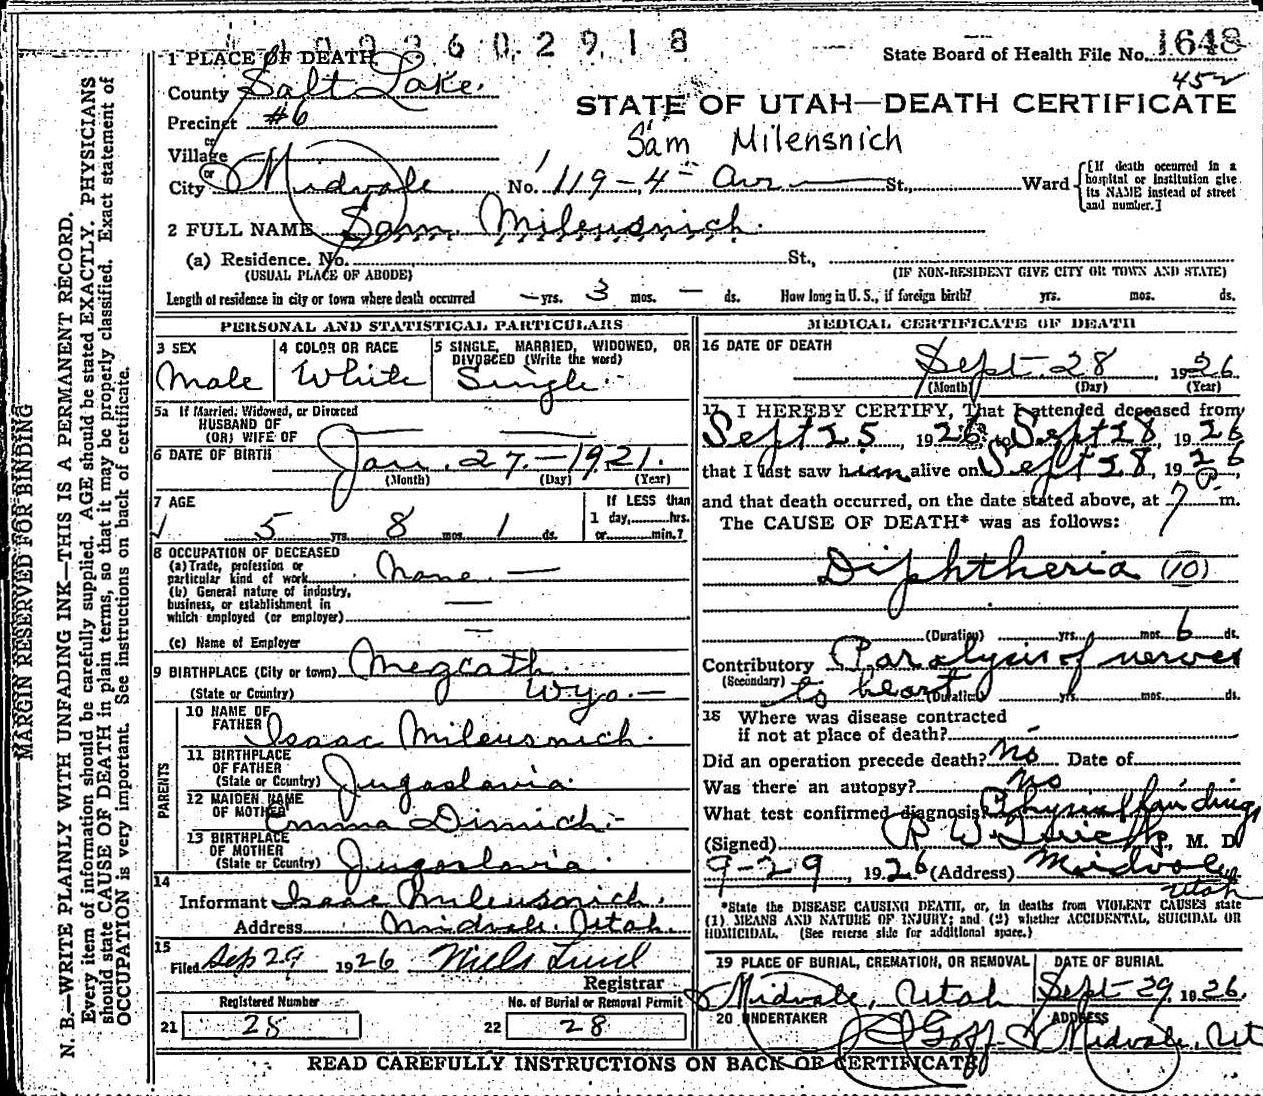 1 0 9 2 6 0 2 9 1 8
State Board of Health File No. 1648
452
1 PLACE OF DEATH
County Salt Lake.
STATE OF UTAH—DEATH CERTIFICATE
Precinct #6
Sam Milensnich
or
Village
or
City Midvale No. 119-4th Ave St., Ward
[If death occurred in a hospital or institution give its NAME instead of street and number.]
2 FULL NAME Sam Mileusnich.
(a) Residence. No. St.,
(USUAL PLACE OF ABODE) (IF NON-RESIDENT GIVE CITY OR TOWN AND STATE)
Length of residence in city or town where death occurred — yrs. 3 mos. — ds. How long in U. S., if foreign birth? yrs. mos. ds.
PERSONAL AND STATISTICAL PARTICULARS
3 SEX
Male
4 COLOR OR RACE
White
5 SINGLE, MARRIED, WIDOWED, OR
DIVORCED (Write the word)
Single
5a If Married, Widowed, or Divorced
HUSBAND OF
(OR) WIFE OF
6 DATE OF BIRTH Jan. 27.—1921.
(Month) (Day) (Year)
7 AGE
5 yrs. 8 mos. 1 ds.
If LESS than
1 day,......hrs.
or......min.?
8 OCCUPATION OF DECEASED
(a) Trade, profession or
particular kind of work None. —
(b) General nature of industry,
business, or establishment in
which employed (or employer) —
(c) Name of Employer —
9 BIRTHPLACE (City or town) Megeath
(State or Country) Wyo.—
PARENTS
10 NAME OF
FATHER Isaac Mileusnich.
11 BIRTHPLACE
OF FATHER
(State or Country) Jugoslavia.
12 MAIDEN NAME
OF MOTHER Emma Dimich.-
13 BIRTHPLACE
OF MOTHER
(State or Country) Jugoslavia.
14
Informant Isaac Mileusnich.
Address Midvale. Utah.
15
Filed Sep 29 1926 Niels Lind
Registrar
Registered Number No. of Burial or Removal Permit
21 28 22 28
MEDICAL CERTIFICATE OF DEATH
16 DATE OF DEATH
Sept. 28 1926
(Month) (Day) (Year)
17 I HEREBY CERTIFY, That I attended deceased from
Sept 25, 1926, to Sept 28 1926
that I last saw him alive on Sept 28, 1926,
and that death occurred, on the date stated above, at 7 P m.
The CAUSE OF DEATH* was as follows:
Diphtheria (10)
(Duration) yrs. mos. 6 ds.
Contributory Paralysis of nerves
(Secondary) to heart (Duration) yrs. mos. ds.
18 Where was disease contracted
if not at place of death? -
Did an operation precede death? No Date of
Was there an autopsy? No
What test confirmed diagnosis? Physical findings
(Signed) M. D.
9-29, 1926 (Address) Midvale
Utah
*State the DISEASE CAUSING DEATH, or, in deaths from VIOLENT CAUSES state
(1) MEANS AND NATURE OF INJURY; and (2) whether ACCIDENTAL, SUICIDAL OR
HOMICIDAL. (See reverse side for additional space.)
19 PLACE OF BURIAL, CREMATION, OR REMOVAL DATE OF BURIAL
Midvale, Utah Sept-29, 1926.
20 UNDERTAKER ADDRESS
Goff Midvale, Ut
READ CAREFULLY INSTRUCTIONS ON BACK OF CERTIFICATE
MARGIN RESERVED FOR BINDING
N. B.—WRITE PLAINLY WITH UNFADING INK—THIS IS A PERMANENT RECORD.
Every item of information should be carefully supplied. AGE should be stated EXACTLY. PHYSICIANS
should state CAUSE OF DEATH in plain terms, so that it may be properly classified. Exact statement of
OCCUPATION is very important. See instructions on back of certificate.